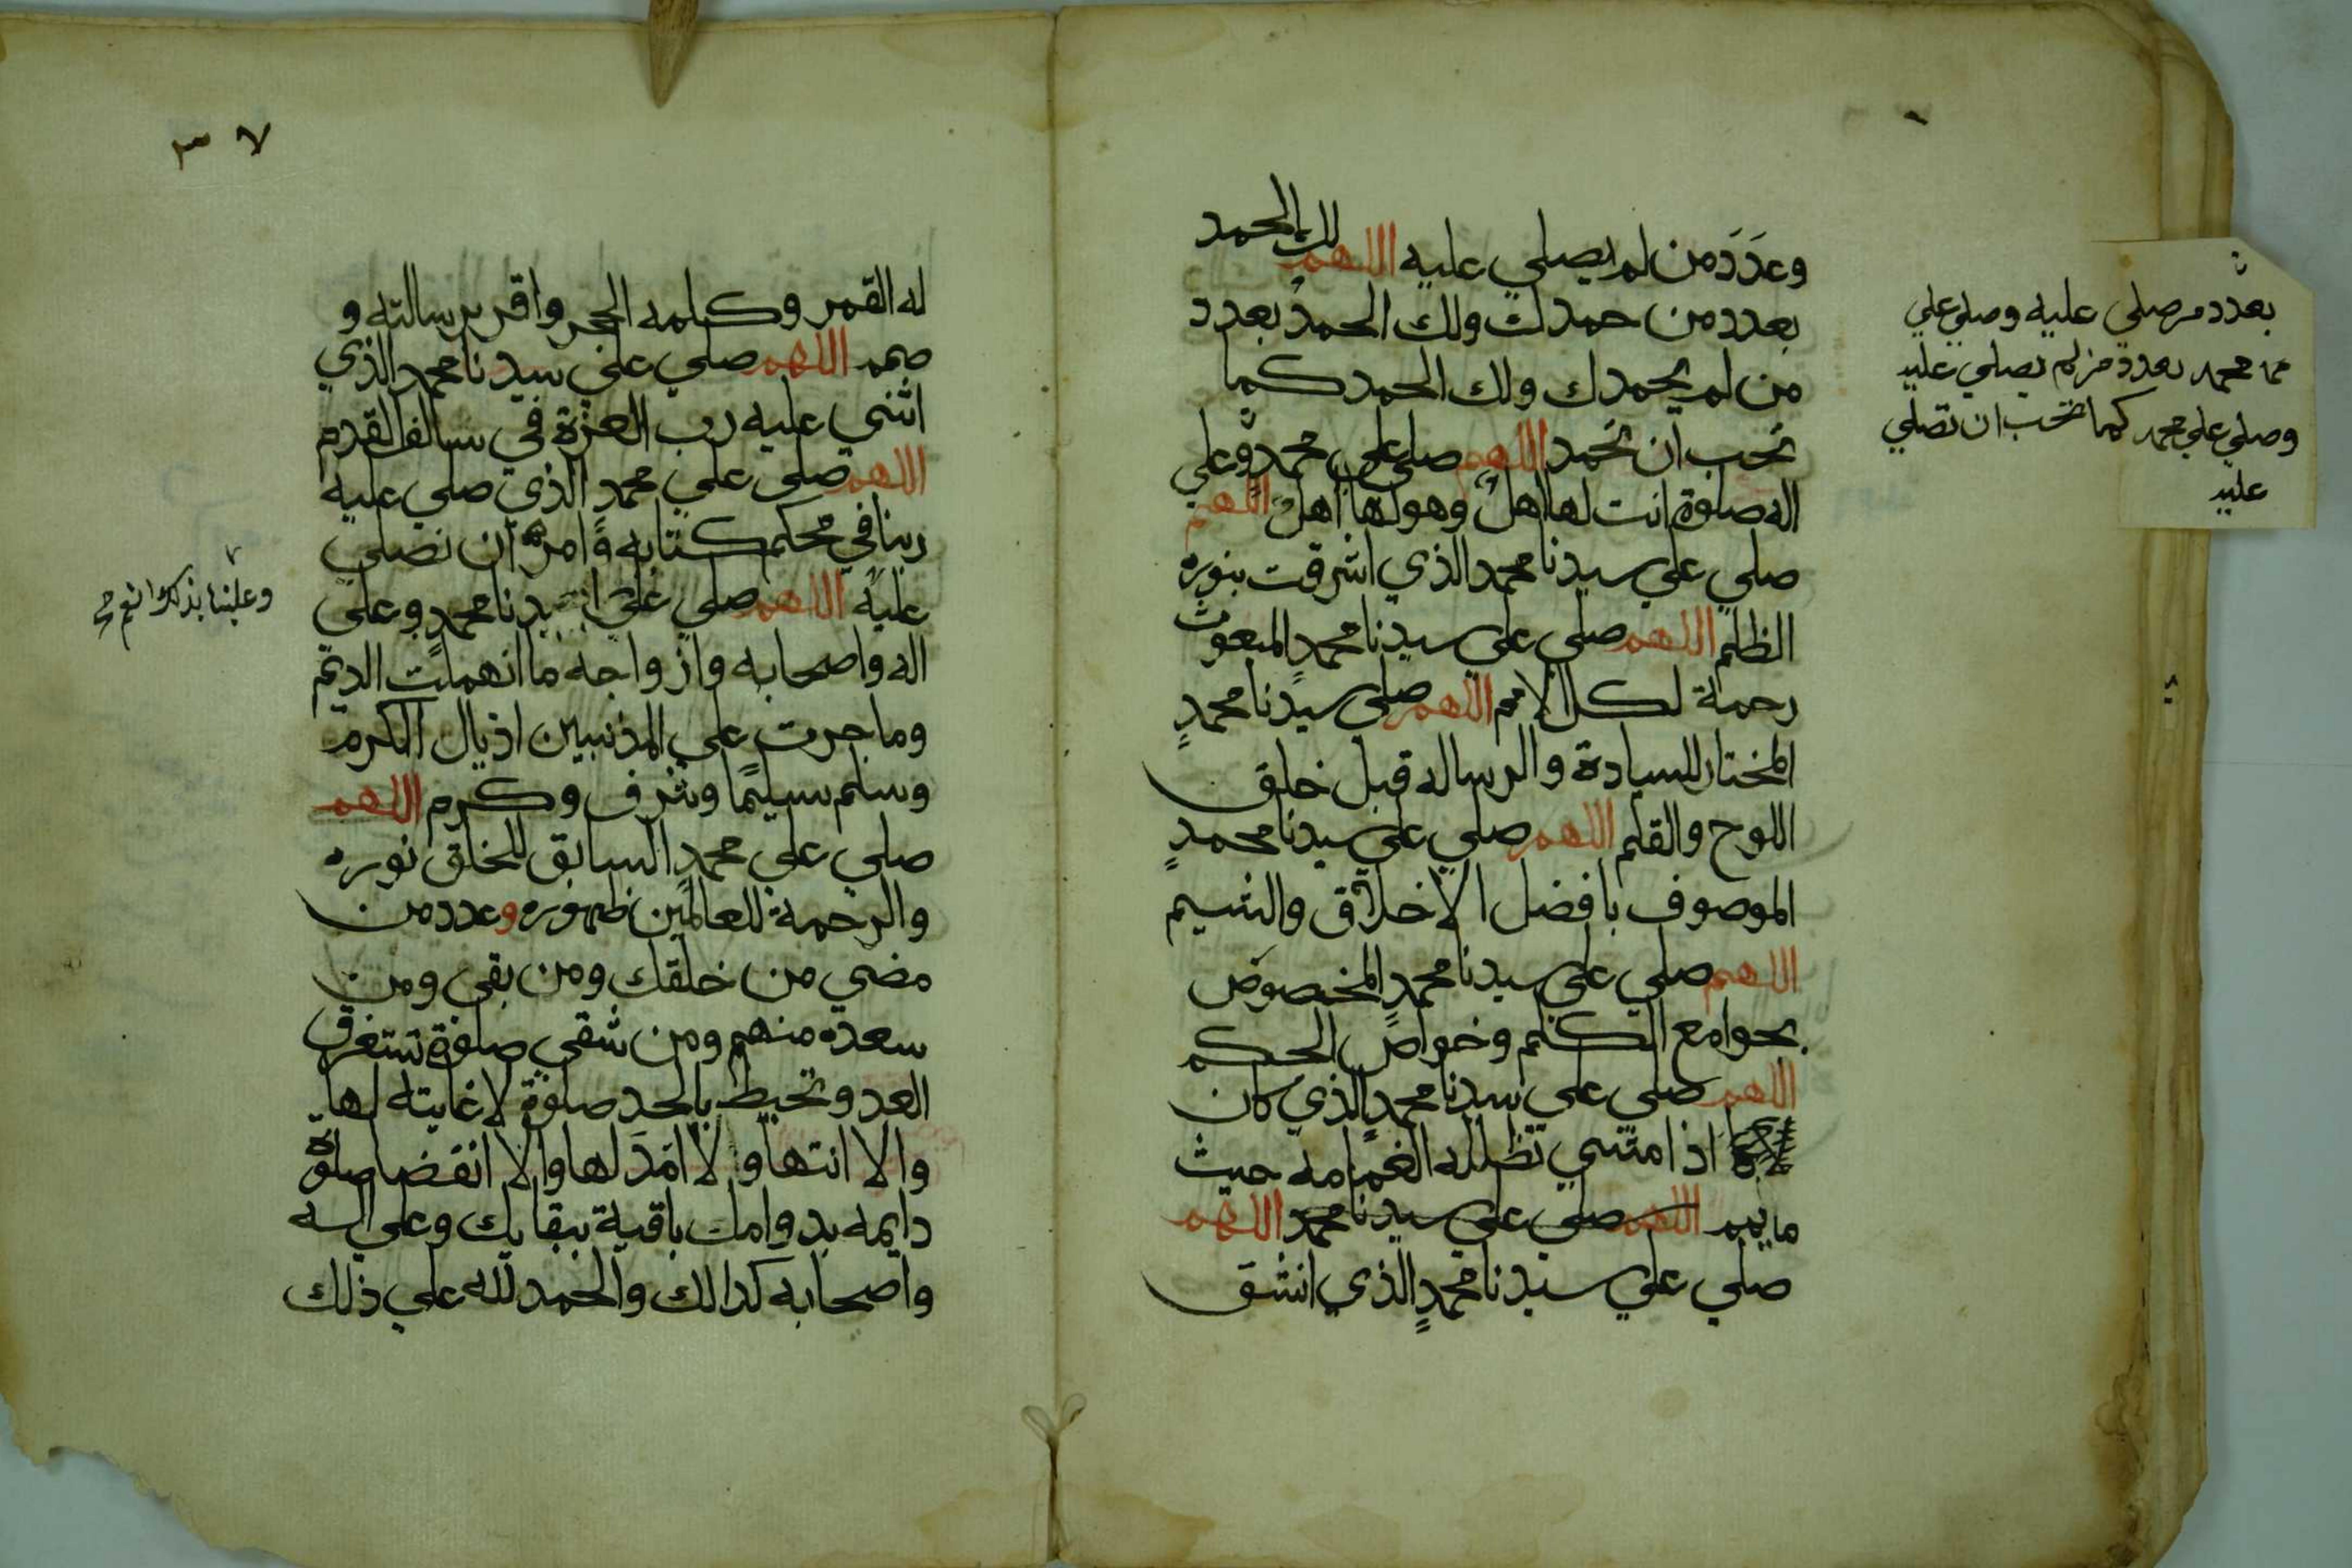 وعدَدَ من لم يصلي عليه اللهم لك الحمد
بعدد من حمدك ولك الحمدُ بعدد
من لم يحمدك ولك الحمد كما
تحب ان تحمد اللهم صلي علي محمدٍ وعلي
اله صلوة انت لها اهلٌ وهو لها اهلٌ اللهم
صلي علي سيدنا محمد الذي اشرقت بنوره
الظلم اللهم صلي علي سيدنا محمدٍ المبعوث
رحمة لكل الامم اللهم صلي سيدنا محمدٍ
المختار للسيادة والرساله قبل خلق
اللوح والقلم اللهم صلي علي سيدنا محمدٍ
الموصوف بافضل الاخلاق والشيم
اللهم صلي علي سيدنا محمدٍ المخصوص
بجوامع الكلم وخواص الحكم
اللهم صلي علي سيدنا محمدٍ الذي كان
اذا مشي تظلله الغمامه حيث
ما يمم اللهم صلي علي سيدنا محمد اللهم
صلي علي سيدنا محمدٍ الذي انشق
بعدد من صلي عليه وصلي علي
محمد بعدد من لم يصلي عليه
وصلي علي محمد كما تحب ان تصلي
عليه
٣٧
له القمر وكلمه الحجر واقر برسالته و
صمم اللهم صلي علي سيدنا محمد الذي
اثني عليه رب العزة في سالف القدم
اللهم صلي علي محمدٍ الذي صلي عليه
ربنا في محكم كتابه وامر ان نصلي
عليه اللهم صلي علي سيدنا محمدٍ وعلي
اله واصحابه وازواجه ما انهملت الديم
وما جرت علي المذنبين اذيال الكرم
وسلم تسليمًا وشرف وكرم اللهم
صلي علي محمدٍ السابق للخلق نوره
والرحمة للعالمين ظهوره وعدد من
مضي من خلقك ومن بقي ومن
سعده منهم ومن شقي صلوة تستغرق
العد وتحيط بالحد صلوة لا غايته لها
والا انتها ولا امَدَ لها والا انقضا صلوة
دايمه بدوامك باقية ببقايك وعلي اله
واصحابه كدالك والحمد لله علي ذلك